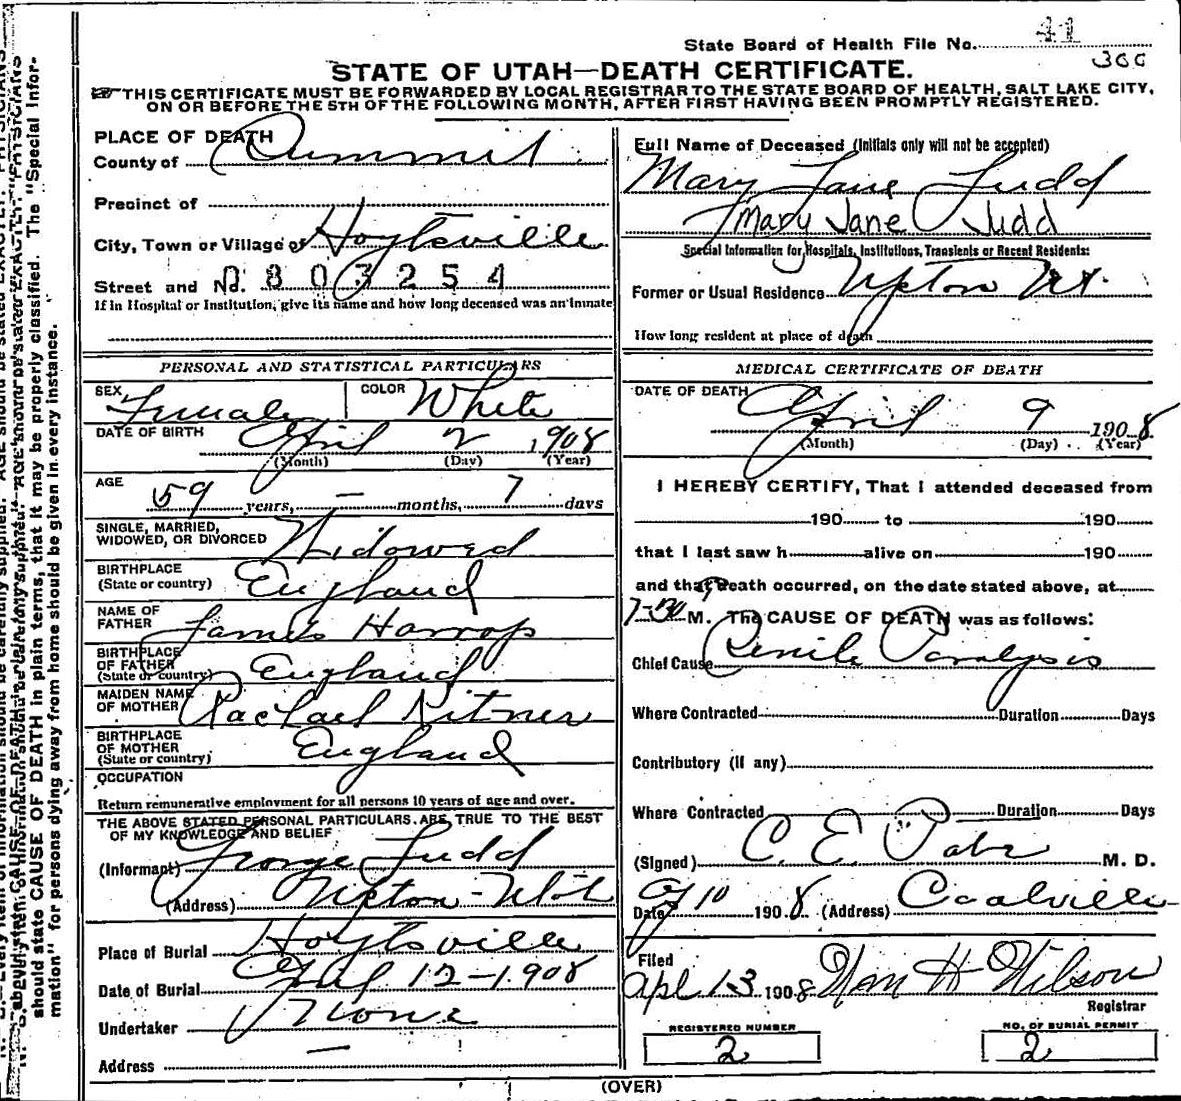 State Board of Health File No. 41
300
STATE OF UTAH—DEATH CERTIFICATE.
THIS CERTIFICATE MUST BE FORWARDED BY LOCAL REGISTRAR TO THE STATE BOARD OF HEALTH, SALT LAKE CITY,
ON OR BEFORE THE 5TH OF THE FOLLOWING MONTH, AFTER FIRST HAVING BEEN PROMPTLY REGISTERED.
PLACE OF DEATH
County of Summit
Precinct of
City, Town or Village of Hoytsville
Street and No. 0803254
If in Hospital or Institution, give its name and how long deceased was an inmate
PERSONAL AND STATISTICAL PARTICULARS
SEX Female COLOR White
DATE OF BIRTH April 2 1908
(Month) (Day) (Year)
AGE 59 years, — months, 7 days
SINGLE, MARRIED,
WIDOWED, OR DIVORCED Widowed
BIRTHPLACE
(State or country) England
NAME OF
FATHER James Harrop
BIRTHPLACE
OF FATHER
(State or country) England
MAIDEN NAME
OF MOTHER Rachael Kitner
BIRTHPLACE
OF MOTHER
(State or country) England
OCCUPATION
Return remunerative employment for all persons 10 years of age and over.
THE ABOVE STATED PERSONAL PARTICULARS ARE TRUE TO THE BEST
OF MY KNOWLEDGE AND BELIEF
(Informant) George Judd
(Address) Upton - Utah
Place of Burial Hoytsville
Date of Burial April 12-1908
Undertaker None
Address —
Full Name of Deceased (Initials only will not be accepted)
Mary Jane Judd
Mary Jane Judd
Special Information for Hospitals, Institutions, Transients or Recent Residents:
Former or Usual Residence Upton Ut.
How long resident at place of death
MEDICAL CERTIFICATE OF DEATH
DATE OF DEATH April 9 1908
(Month) (Day) (Year)
I HEREBY CERTIFY, That I attended deceased from
190 to 190
that I last saw h alive on 190
and that death occurred, on the date stated above, at
M. The CAUSE OF DEATH was as follows:
Chief Cause Senile Paralysis
Where Contracted Duration Days
Contributory (if any)
Where Contracted Duration Days
(Signed) C. E. M. D.
Date 10 1908 (Address) Coalville
Filed
Apl 13 1908 Wm H Wilson
Registrar
REGISTERED NUMBER
2
NO. OF BURIAL PERMIT
2
(OVER)
should state CAUSE OF DEATH in plain terms, that it may be properly classified. The "Special Infor-
mation" for persons dying away from home should be given in every instance.